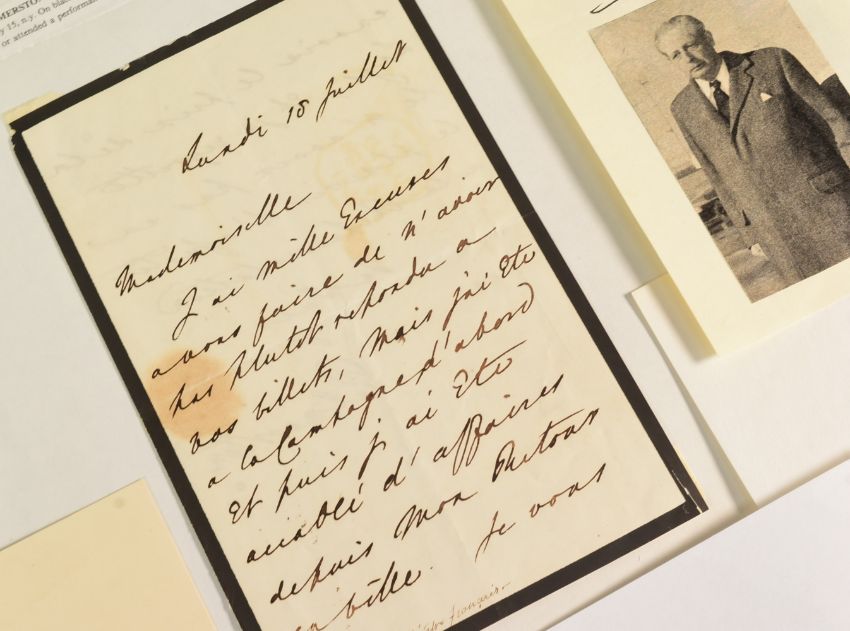 MERSTO
y 15, n.y. On bla
or attended a performa
Lundi 18 Juillet
Mademoiselle
J'ai mille Excuses
a vous faire de n'avoir
pas plutot repondu a
vos billets, mais j'ai Ete
a la Campagne d'abord
Et puis j'ai Ete
accablé d'affaires
depuis mon Retour
en ville. Je vous
français.